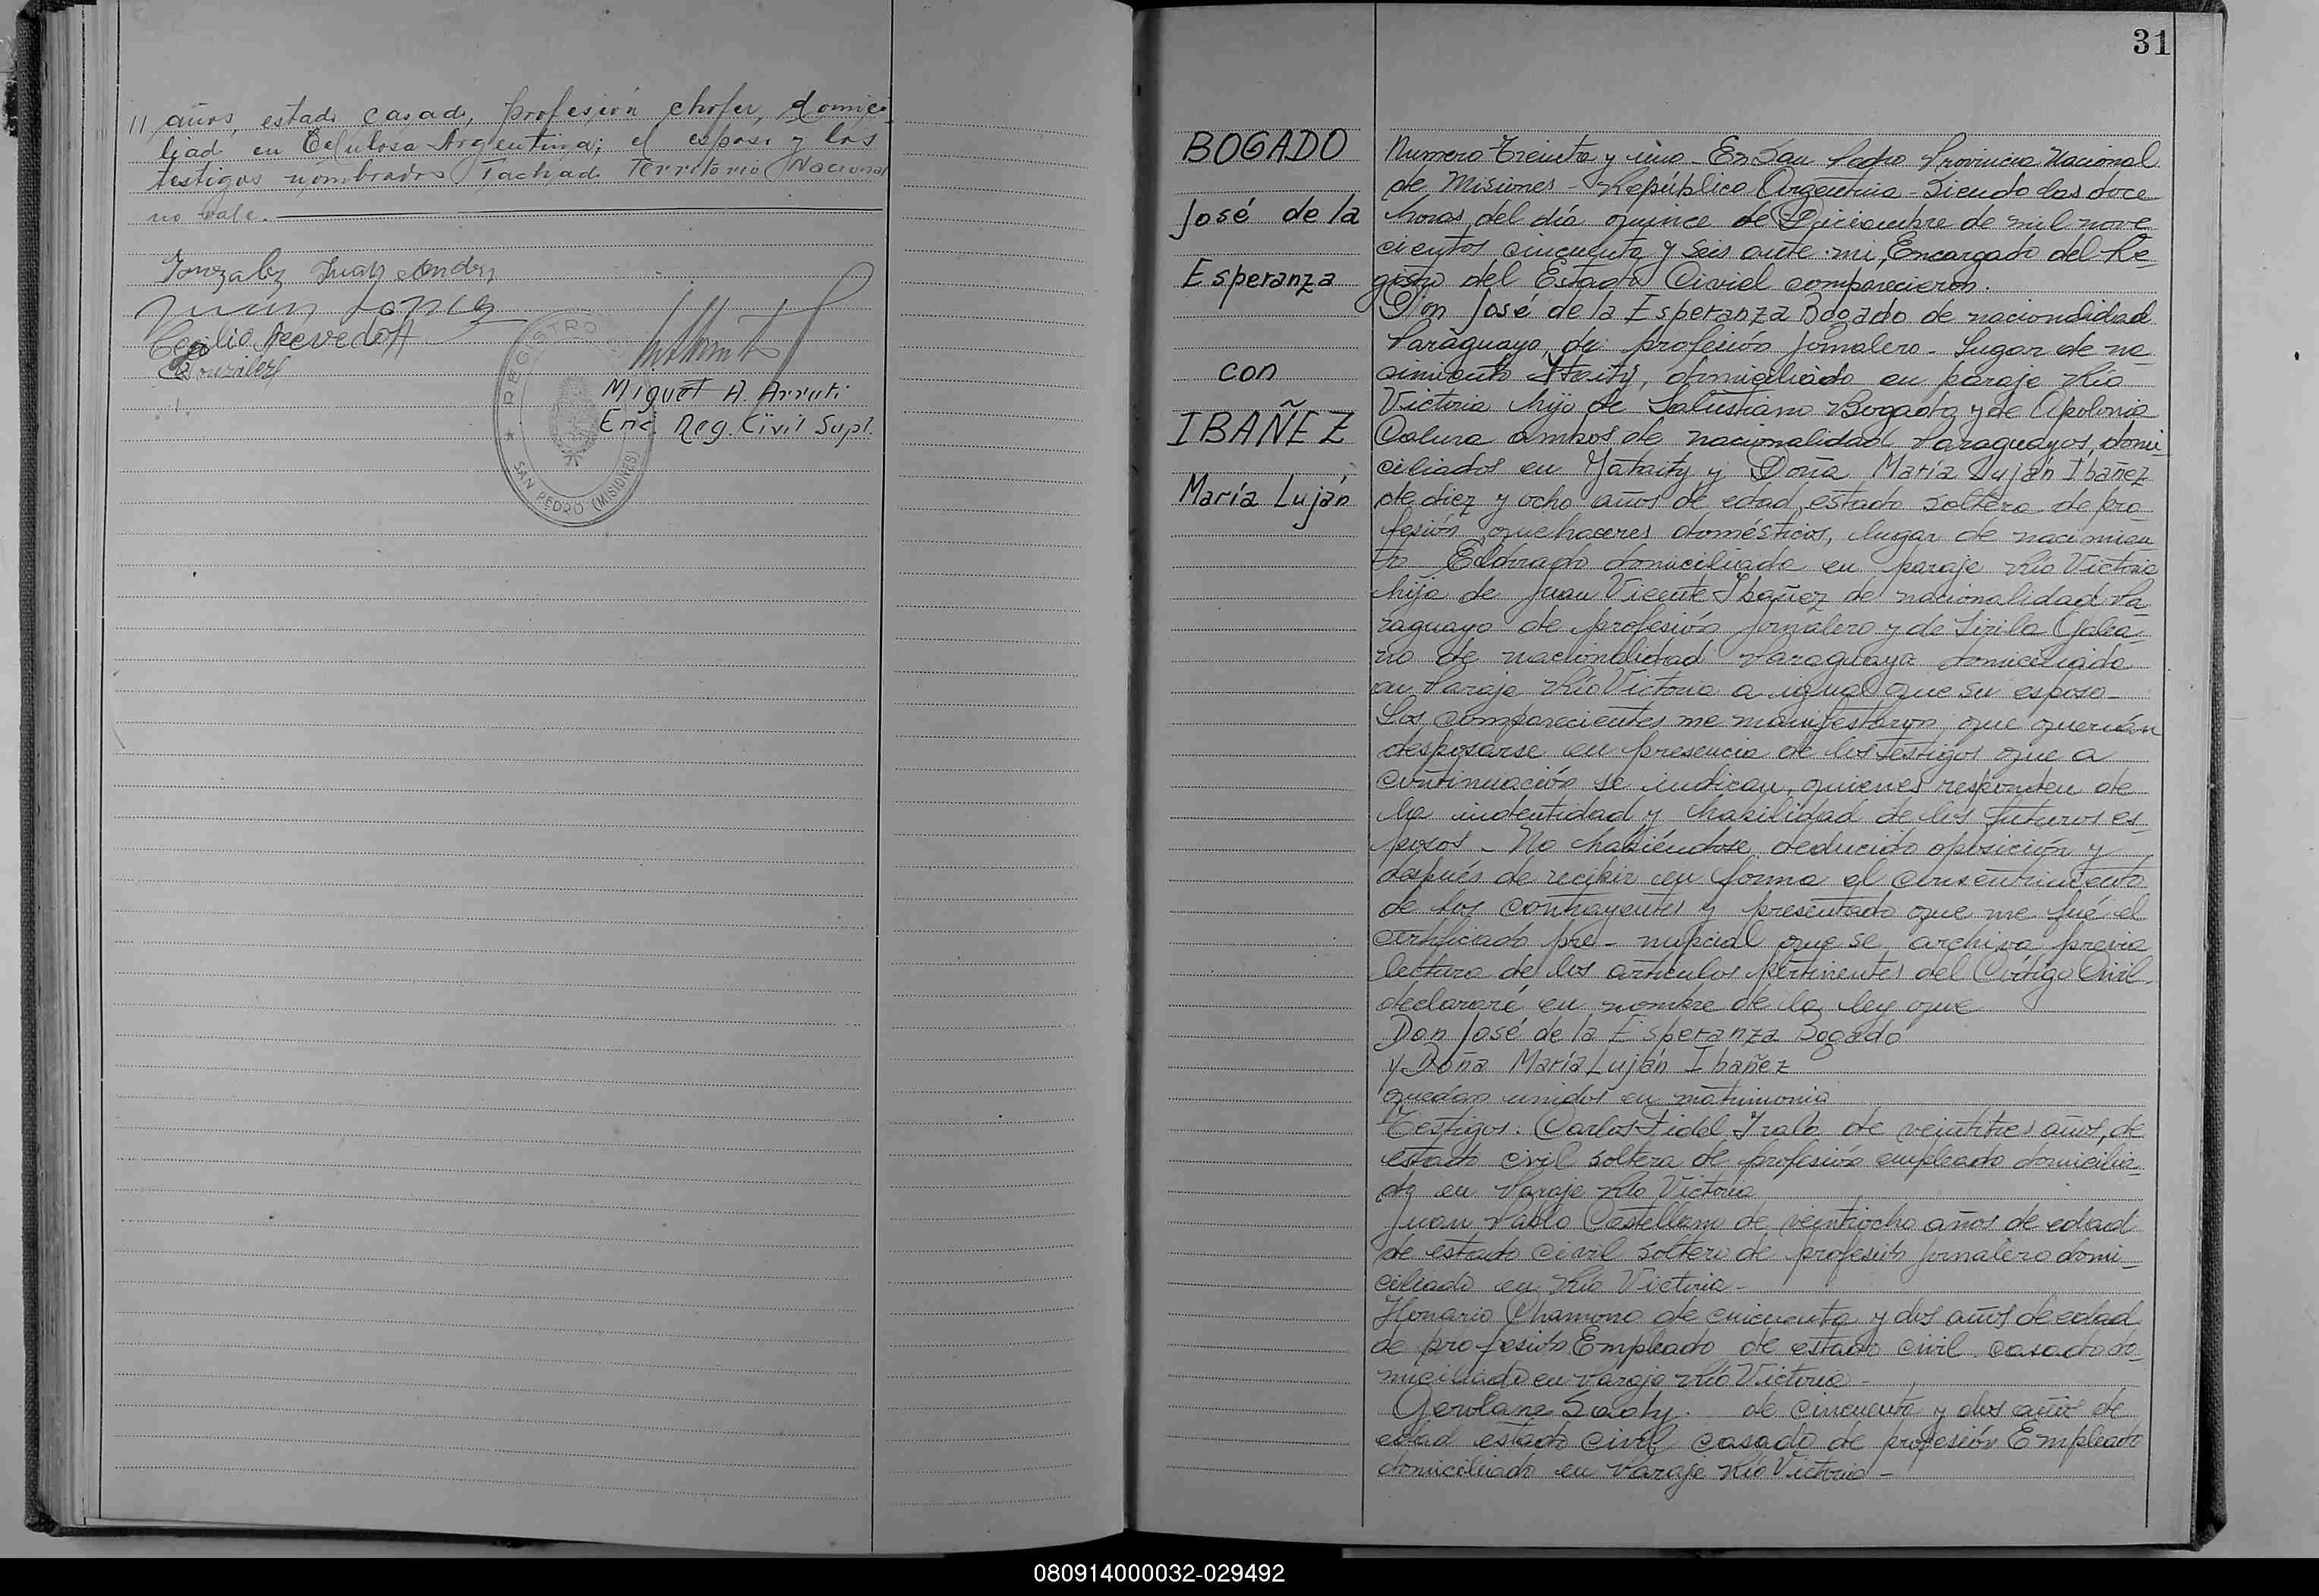 11 años, estado casado, profesión chofer, domici-
liado en Celulosa Argentina; el esposo y los
testigos nombrados Tachado Territorio Nacional
no vale.
Gonzalez Juan
Cecilio Acevedo
Gonzalez
REGISTRO
SAN PEDRO (MISIONES)
Miguel A. Arruti
Enc. Reg. Civil Supl.
31
BOGADO
José de la
Esperanza
con
IBAÑEZ
María Luján
Numero Treinta y uno - En San Pedro Provincia Nacional
de Misiones - República Argentina - Siendo las doce
horas del día quince de Diciembre de mil nove
cientos cincuenta y seis ante mi, Encargado del Re-
gistro del Estado Civiel comparecieron.
Don José de la Esperanza Bogado de nacionalidad
Paraguayo, de profesión jornalero - Lugar de na
cimiento, domiciliado en paraje Río
Victoria hijo de Salustiano Bogado y de Apolonia
ambos de nacionalidad Paraguayos, domi
ciliados en y Doña María Luján Ibañez
de diez y ocho años de edad, estado soltera de pro
fesión quehaceres domésticos, lugar de nacimien
to Eldorado domiciliada en paraje Río Victoria
hija de Juan Vicente Ibañez de nacionalidad Pa
raguayo de profesión jornalero y de Sirila Galea-
no de nacionalidad Paraguaya domiciliada
en Paraje Río Victoria a igual que su esposo -
Los comparecientes me manifestaron que querían
desposarse en presencia de los testigos que a
continuación se indican, quienes responden de
la indentidad y habilidad de los futuros es-
posos - No habiéndose deducido oposición y
después de recibir en forma el consentimiento
de los contrayentes y presentado que me fué el
certificado pre-nupcial que se archiva previa
lectura de los artículos pertinentes del Código Civil
declararé en nombre de la ley que
Don José de la Esperanza Bogado
y Doña María Luján Ibañez
quedan unidos en matrimonio
Testigos: Carlos Fidel Irala de veintitres años, de
estado civil soltera de profesión empleado domicilia
do en Paraje Río Victoria
Juan Pablo Castellano de veintiocho años de edad
de estado civil soltero de profesión jornalero domi-
ciliado en Río Victoria -
Honario Chamorro de cincuenta y dos años de edad
de profesión Empleado de estado civil casado do-
miciliado en Paraje Río Victoria -
de cincuenta y dos años de
edad estado civil casado de profesión Empleado
domiciliado en Paraje Río Victoria -
080914000032-029492